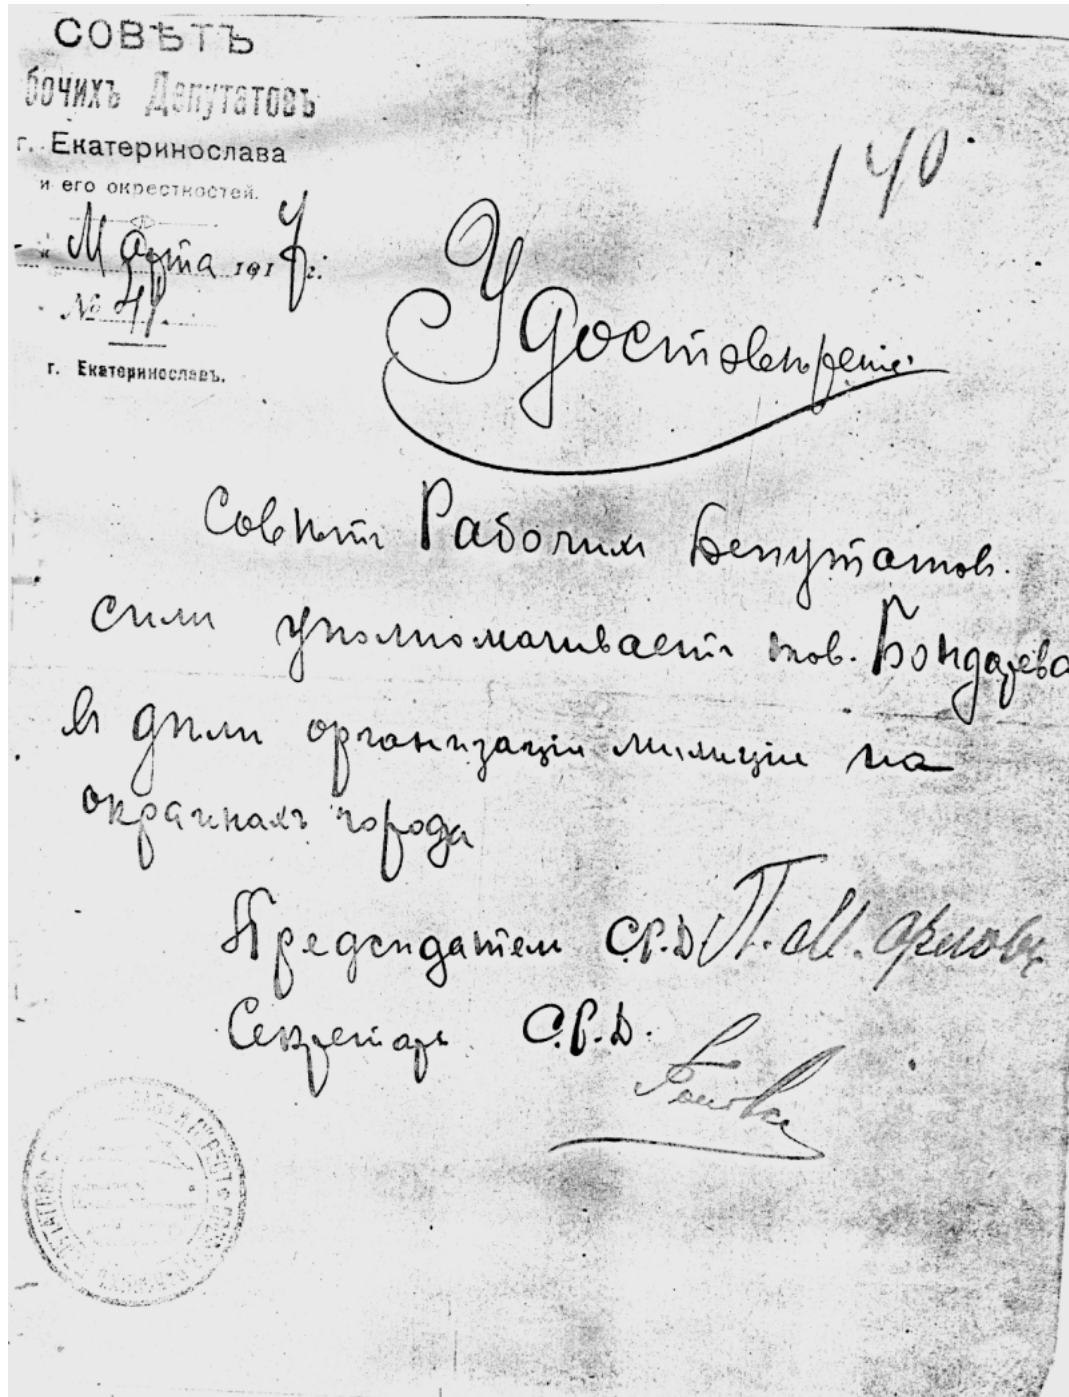 СОВѢТЪ
бочихъ Депутатовъ
г. Екатеринослава
и его окрестностей.
" Марта 1917 г.
№ 41.
г. Екатеринославъ.
140.
Удостовѣреніе
Совѣтъ Рабочихъ Депутатовъ.
симъ уполномачиваетъ тов. Бондарева
въ дѣлѣ организаціи милиціи на
окраинахъ города
Предсѣдатель С.Р.Д. П. М. Орловъ
Секретарь С.Р.Д.